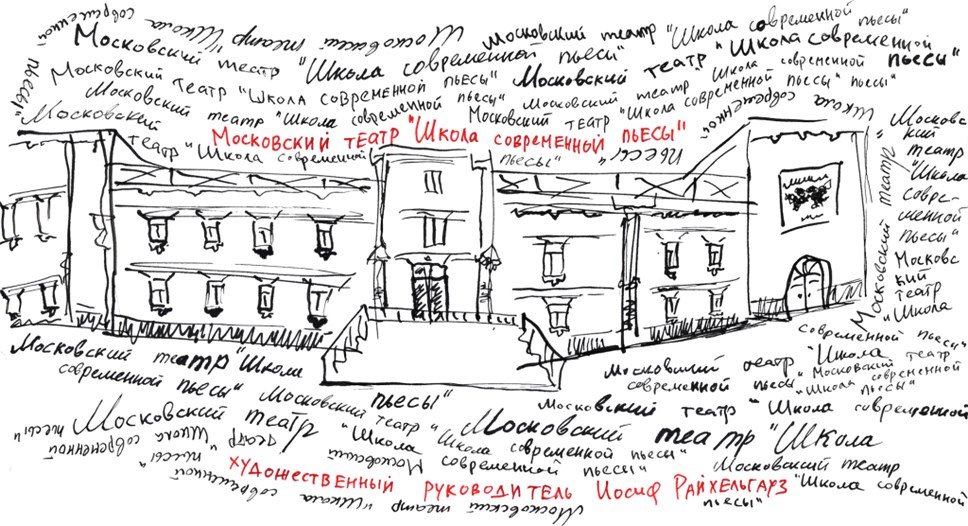 Московский театр "Школа современной
Московский театр "Школа современной пьесы"
Московский театр "Школа современной
Московский театр "Школа современной пьесы"
Московский театр "Школа современной пьесы"
Московский театр "Школа современной пьесы"
Московский театр "Школа современной пьесы"
Московский театр "Школа современной пьесы"
Московский театр "Школа современной пьесы"
Московский
театр "Школа современной
пьесы"
МОСКОВСКИЙ ТЕАТР "ШКОЛА СОВРЕМЕННОЙ ПЬЕСЫ"
Московский театр
Школа современной
пьесы"
Московс
кий
театр
"Школа
совре-
менной
пьесы"
Московс
кий
театр
"Школа
современной пьесы"
Московский театр "Школа
современной пьесы"
Московский театр "Школа
современной пьесы"
Московский театр
"Школа современной
пьесы"
Московский театр "Школа современной
пьесы"
Московский театр
"Школа современной пьесы"
Московский театр "Школа
современной пьесы"
Московский театр "Школа современной
пьесы"
Московский театр "Школа современной
пьесы"
ХУДОЖЕСТВЕННЫЙ РУКОВОДИТЕЛЬ ИОСИФ РАЙХЕЛЬГАУЗ
Московский театр "Школа современной